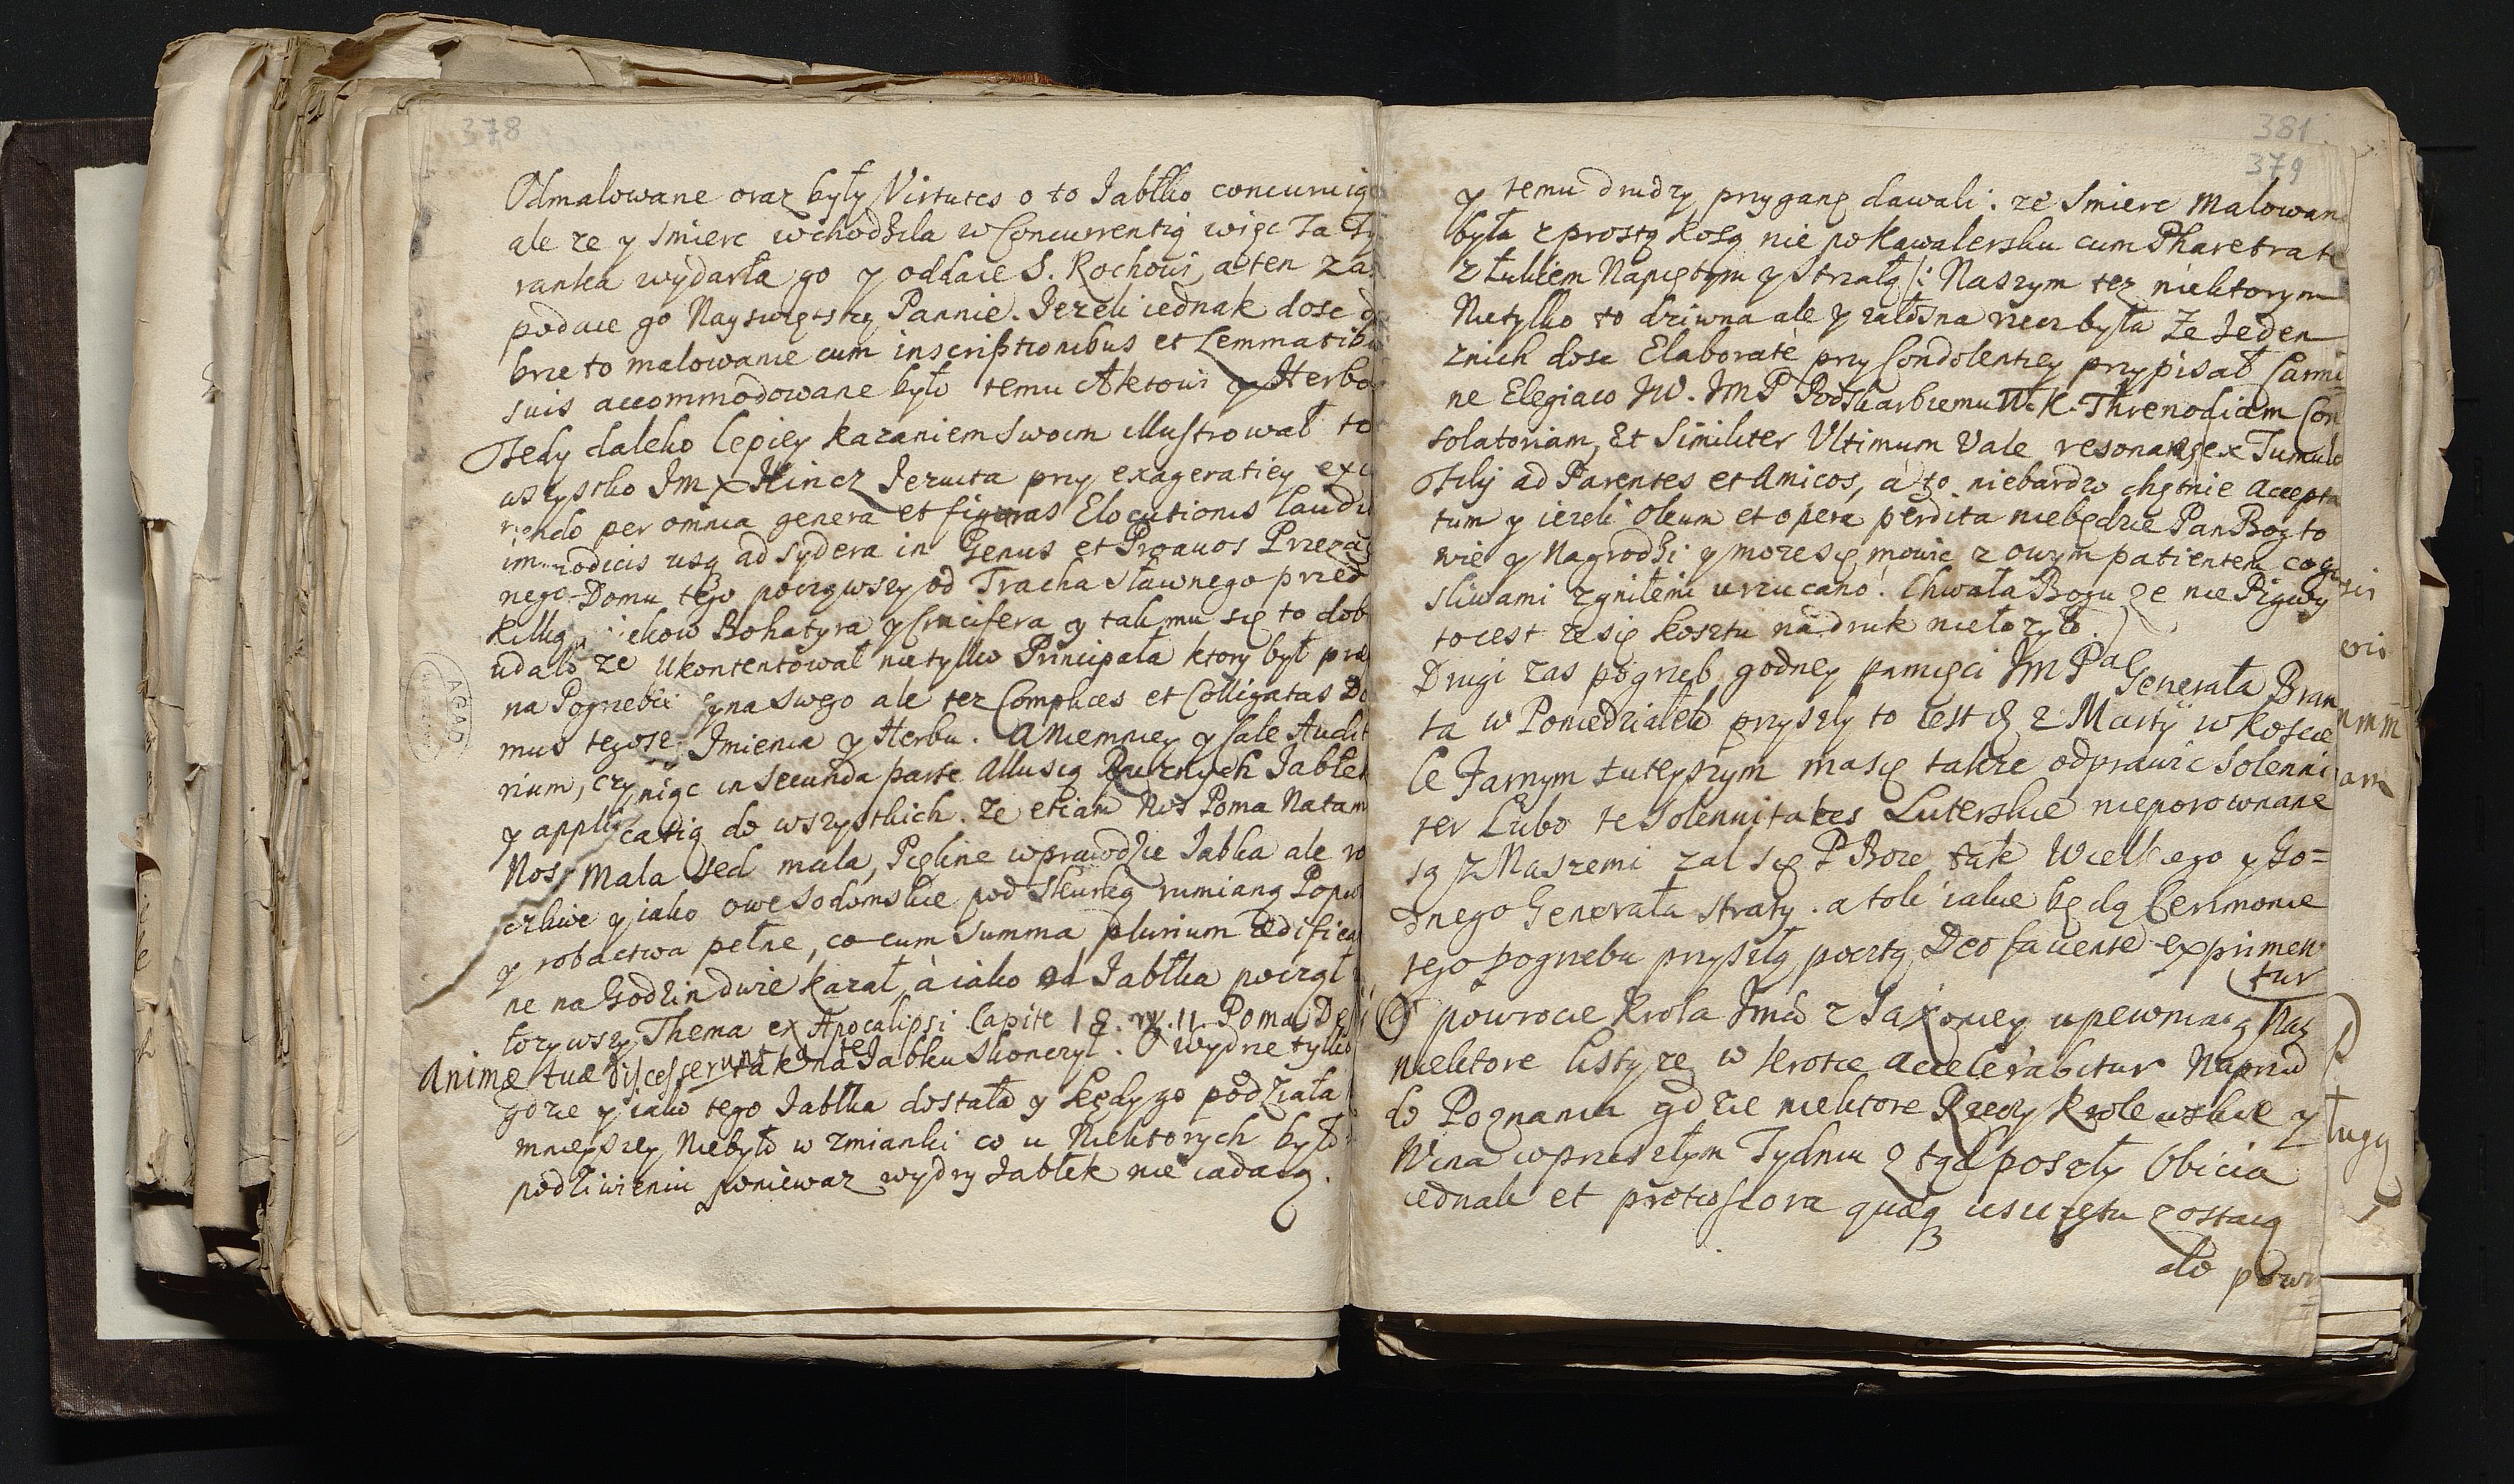 378
Odmalowane oraz były Virtutes o to Jabłko concuruią
ale ze y smierc wchodziła w Concurrentią więc Ta Ty
ranka wydarła go y oddaie S. Rochowi, a ten zas
podaie go Nayswiętszey Pannie. Jezeli iednak dosc do
brze to malowanie cum inscriptionibus et Lemmatibus
suis accommodowane było temu Aktowi y Herbo
Tedy daleko lepiey kazaniem swoim illustrował to
wszystko Jm X Hincz Jezuita przy exageratiey exc
per omnia genera et figuras Elocutionis laudi
usq ad sydera in Genus et Proavos Przeza
nego Domu tego począwszy od Tracha sławnego przed
Bohatyra y Crucifera y tak mu się to dob
udało ze Ukontentował nietylko Principała ktory był prae
na Pogrzebie syna swego ale tez Complices et Colligatas Do
mus tegosz Jmienia y Herbu. A niemniey y cale Audit
rium, czyniąc in secunda parte allusią Jabłek
y applicatią do wszystkich. Ze etiam Nos Poma Natam
Nos Mala sed mala, Piękne wprawdzie Jabka ale ro
czliwe y iako owe Sodomskie pod skurką rumianą Popio
y robactwa pełne, co cum summa plurium ædifica
ne na Godzin dwie kazał, a iako od Jabłka począł
lozywszy Thema ex Apocalipsi Capite 18. w. 11 Poma De
Animæ tuæ discesserunt a te tak na Jabłku skonczył. O wydrze tylko
gdzie y iako tego Jabłka dostała y kędy go podziała
mnieyszey Niebyło wzmianki co u Niektorych było
podziwieniu poniewaz wydry Jabłek nie iadaią.
AGAD
381
379
y temu drudzy przyganę dawali: ze Smierc Malowan
była z prostą kosą nie po kawalersku cum Pharetrate
z łukiem Napiętym y strzałą /: Naszym tez niektorym
Nietylko to dziwna ale y załosna rzecz była Ze Jeden
znich dosc Elaboratè przy Condolentiey przypisał Carmi
ne Elegiaco JW. JmP Podskarbiemu W. K. Threnodiam Con
solatoriam, Et Similiter Ultimum Vale resonans ex Tumulo
Filij ad Parentes et Amicos, a to niebardzo chętnie accepta
tum y iezeli oleum et opera perdita niebędzie Pan Bog to
wie y Nagrodzi y moze się mowic z owym patientem co go
sliwami zgniłemi urzucano. Chwała Bogu ze nie Pigwy
to iest ze się kosztu na druk niełozyło.
Drugi zas pogrzeb godney pamięci JmPa Generała Bran
ta w Poniedziałek przyszły to iest d. 2 Martij w koscie
le Farnym tuteyszym ma się takze odprawic Solenni
ter Lubo te Solennitates Luterskie nieporownane
są z Naszemi zal się P Boze tak Wielkiego y Go=
dnego Generała straty. a toli iakie będą Cerimonie
tego pogrzebu przyszłą pocztą Deo favente exprimen
tur
O powrocie Krola Jmci z Saxoniey upewniaią Nas
niektore listy ze w krotce accelerabitur Naprzod
do Poznania gdzie niektore Rzeczy krolewskie y
Wina wprzeszłym Tydniu ztąd poszły Obicia
iednak et pretiosiora quæq usu zętu zostaią
do powr